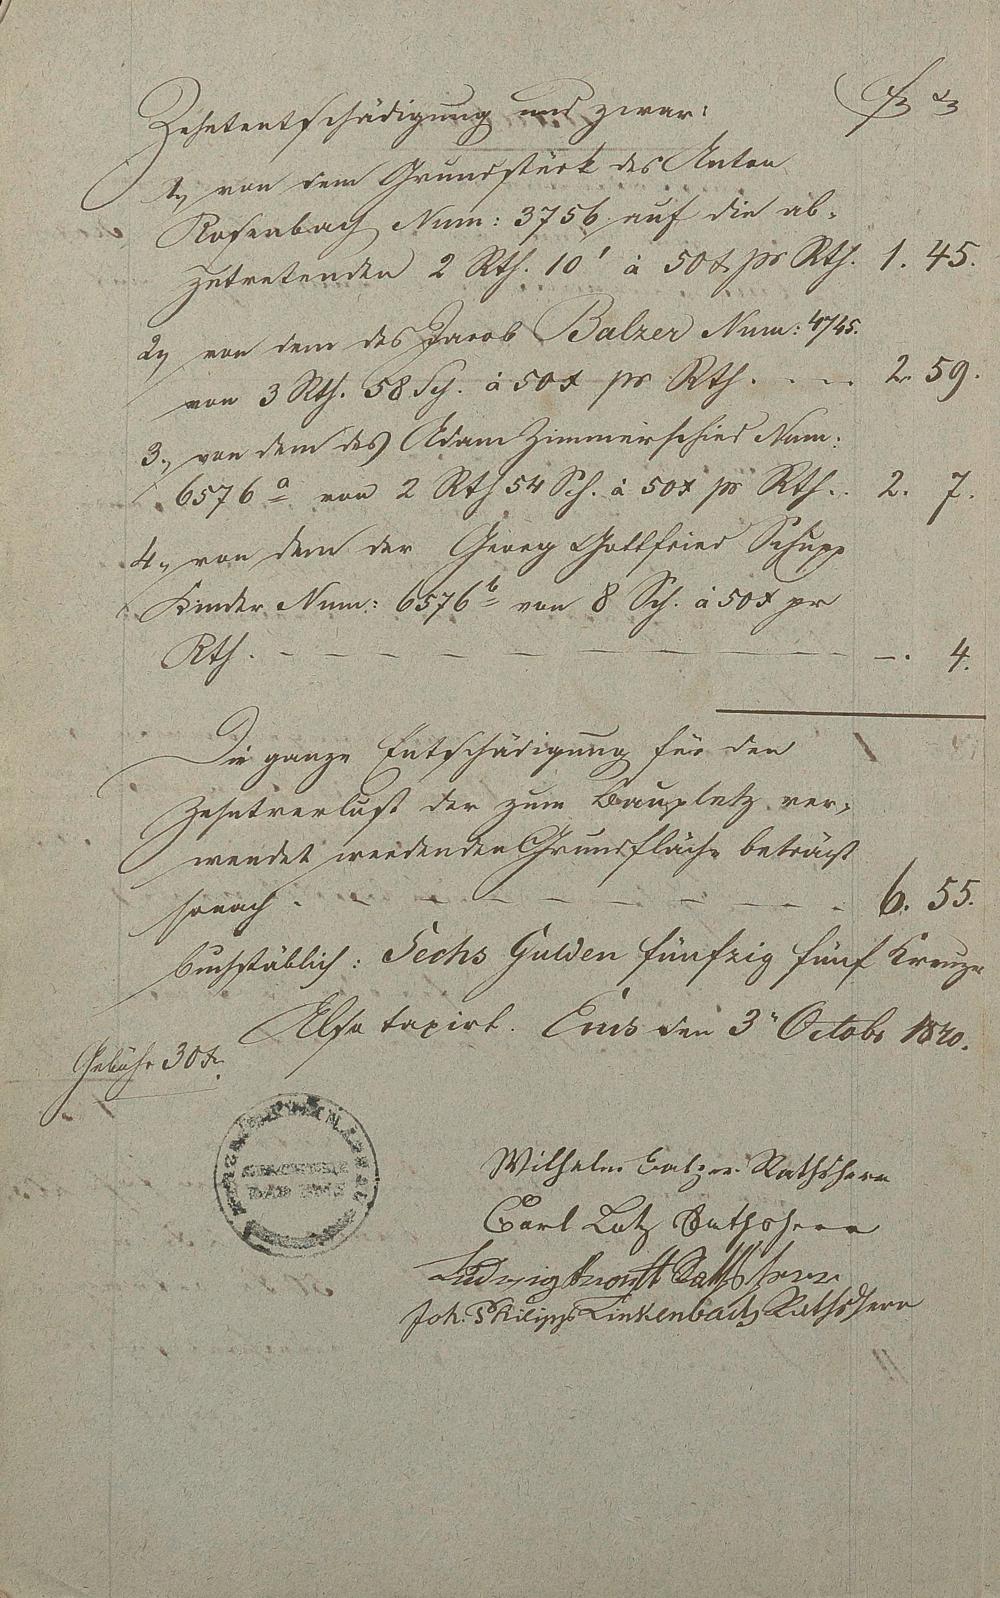 Zehntentschädigung und zwar: f x
1., von dem Grundstück des Anton
Rosenbach Num: 3756 auf die ab-
zutretenden 2 Rth. 10' à 50x pr Rth. 1. 45.
2., von dem des Jacob Balzer Num: 4745.
von 3 Rth. 58 Sch. à 50x pr Rth. . . .. 2. 59.
3., von dem des Adam Zimmerschied Num:
6576a von 2 Rth 54 Sch. à 50x pr Rth.. 2. 7.
4., von dem der Georg Gottfried Schupp
Kinder Num: 6576b von 8 Sch. à 50x pr
Rth. – – – – – – – – –. 4.
Die ganze Entschädigung für den
Zehntverlust der zum Bauplatz ver-
wendet werdenden Grundfläche beträgt
sonach . – – – – – – – 6. 55.
buchstäblich: Sechs Gulden fünfzig fünf Kreuzer
Also taxirt. Ems den 3n Octobr
Gebühr 30x.
BAD EMS
Wilhelm Balzer Rathsherr
Carl Lotz Rathsherr
Ludwig Rathsherr
Joh. Philipp Linkenbach Rathsherr